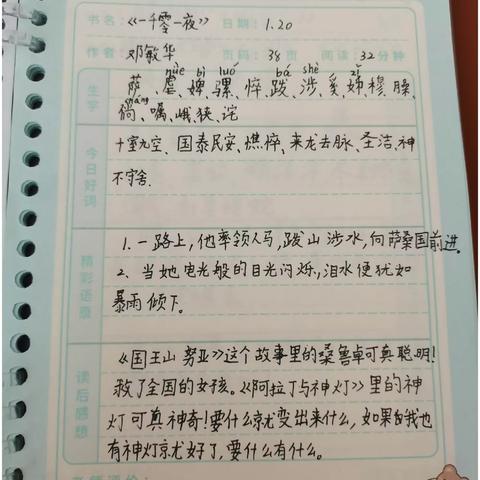 书名:《一千零一夜》 日期: 1.20
作者: 邓敏华 页码: 38页 阅读: 32分钟
生字
nüè bì luó bá shè zǐ
萨、虐、婢、骡、悴、跋、涉、奚、姊、穆、臊、
嘱、峨、狭、诧
今日好词
十室九空、国泰民安、憔悴、来龙去脉、圣洁、神
不守舍.
精彩语录
1. 一路上,他率领人马,跋山涉水,向萨桑国前进.
2. 当她电光般的目光闪烁,泪水便犹如
暴雨倾下。
读后感想
《国王山努亚》这个故事里的桑鲁卓可真聪明!
救了全国的女孩。《阿拉丁与神灯》里的神
灯可真神奇!要什么就变出来什么,如果我也
有神灯就好了,要什么有什么。